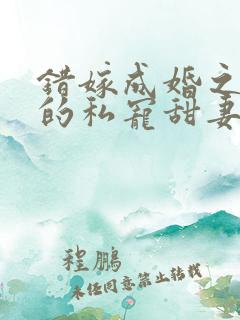 错嫁成婚之
的私宠甜妻
程鹏
未经同意禁止转载